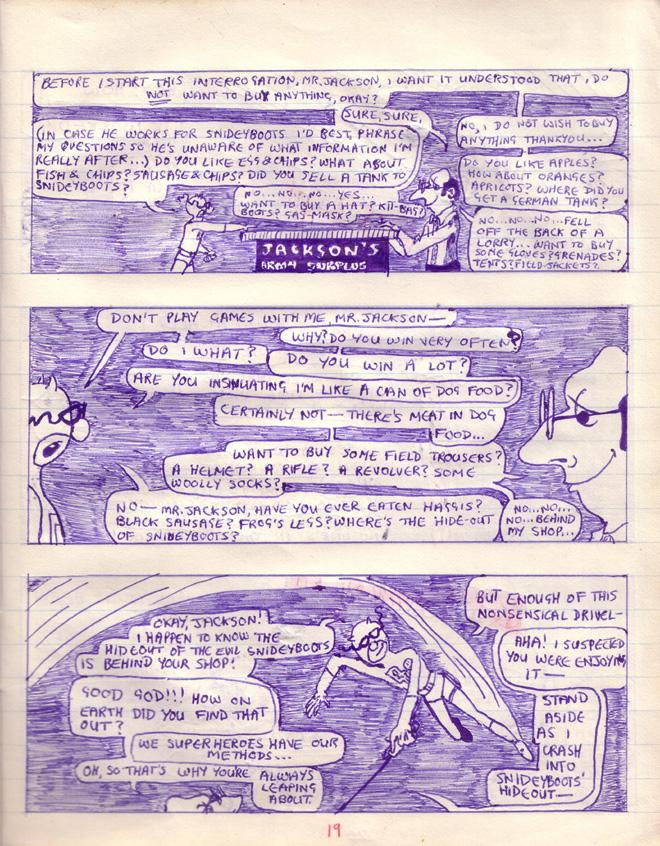 BEFORE I START THIS INTERROGATION, MR. JACKSON, I WANT IT UNDERSTOOD THAT I DO
NOT WANT TO BUY ANYTHING, OKAY?
SURE, SURE,
NO, I DO NOT WISH TO BUY
ANYTHING THANKYOU...
(IN CASE HE WORKS FOR SNIDEYBOOTS I'D BEST PHRASE
MY QUESTIONS SO HE'S UNAWARE OF WHAT INFORMATION I'M
REALLY AFTER...) DO YOU LIKE EGG & CHIPS? WHAT ABOUT
FISH & CHIPS? SAUSAGE & CHIPS? DID YOU SELL A TANK TO
SNIDEYBOOTS?
NO...NO...NO...YES...
WANT TO BUY A HAT? KIT-BAG?
BOOTS? GAS-MASK?
DO YOU LIKE APPLES?
HOW ABOUT ORANGES?
APRICOTS? WHERE DID YOU
GET A GERMAN TANK?
NO...NO...NO...FELL
OFF THE BACK OF A
LORRY... WANT TO BUY
SOME GLOVES? GRENADES?
TENTS? FIELD-JACKETS?
JACKSON'S
ARMY SURPLUS
DON'T PLAY GAMES WITH ME, MR. JACKSON—
WHY? DO YOU WIN VERY OFTEN?
DO I WHAT?
DO YOU WIN A LOT?
ARE YOU INSINUATING I'M LIKE A CAN OF DOG FOOD?
CERTAINLY NOT — THERE'S MEAT IN DOG
FOOD...
WANT TO BUY SOME FIELD TROUSERS?
A HELMET? A RIFLE? A REVOLVER? SOME
WOOLLY SOCKS?
NO — MR. JACKSON, HAVE YOU EVER EATEN HAGGIS?
BLACK SAUSAGE? FROG'S LEGS? WHERE'S THE HIDE-OUT
OF SNIDEYBOOTS?
NO...NO...
NO...BEHIND
MY SHOP...
OKAY, JACKSON!
I HAPPEN TO KNOW THE
HIDEOUT OF THE EVIL SNIDEYBOOTS
IS BEHIND YOUR SHOP!
GOOD GOD!!! HOW ON
EARTH DID YOU FIND THAT
OUT?
WE SUPERHEROES HAVE OUR
METHODS...
OH, SO THAT'S WHY YOU'RE ALWAYS
LEAPING
ABOUT.
BUT ENOUGH OF THIS
NONSENSICAL DRIVEL—
AHA! I SUSPECTED
YOU WERE ENJOYING
IT —
STAND
ASIDE
AS I
CRASH
INTO
SNIDEYBOOTS'
HIDEOUT—
19